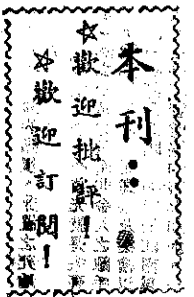 本刊：
☆歡迎批評！
☆歡迎訂閱！